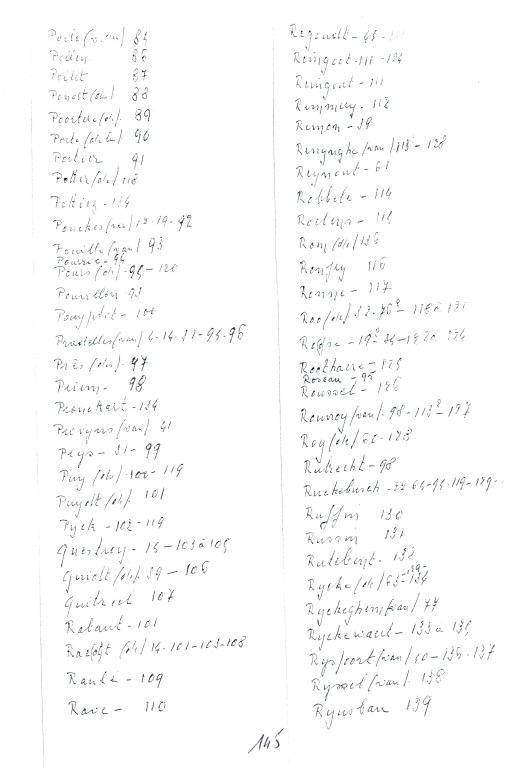 Poele (v. den) 84
Pollin 86
Pollet 87
Ponolt (de) 88
Poortere (de). 89
Porte (de la) 90
Portier 91
Potter (de) 118
Pottiez - 134
Pouckes (van) 12-19-92
Pouille (van) 93
Pourrie - 94
Pours (de) - 95 - 120
Pouvillon 93
Pouyplet - 100
Praxelles (van) 4-14-31-94-96
Près (des) - 97
Priem - 98
Pronckart - 134
Provyns (van). 41
Prys - 31 - 99
Puy (du) 100 - 119
Puydt (de). 101
Pyck - 102 - 119
Questroy - 14 - 103 à 105
Guidt (de). 39 - 106
Quitreel 107
Rabaut - 101
Raedt (de) 14-101-103-108
Raulé - 109
Rave - 110
Regoudt - 43 -
Reingoet - 111 - 124
Reingout - 111
Remmery. 112
Remon - 39
Renynghe (van) 113 - 128
Reynout - 61
Robbele - 114
Roeleyns - 115
Rom (de) 136
Ronfey 116
Ronse - 117
Roo (de) 32-76² - 118 à 121
Roothaere - 125
Roseau - 95
Roussel - 126
Rouvroy (van). 98 - 113² - 127
Roy (de) 60 - 128
Rutrecht - 98
Ruckebusch - 32-64-94-119-129 -
Ruffin 130
Russin 131
Rutebeyt. 132
Rycke (de) 63-129-134
Ryckeghem (van) 77
Ryckewaert - 133 à 135
Ryspoort (van) 40 - 136 - 137
Ryssel (van). 138
Rynsban 139
145